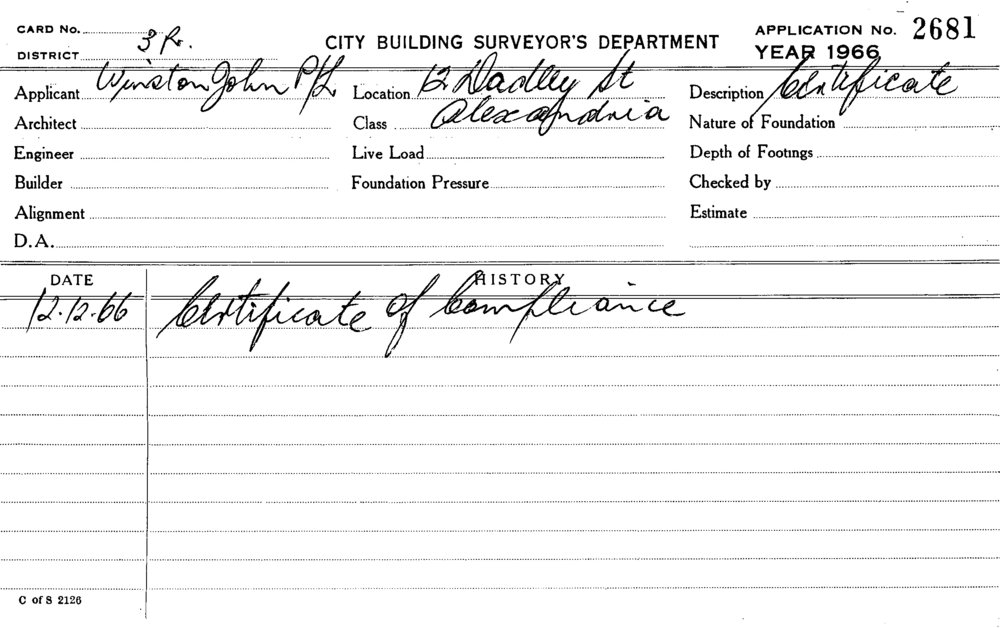 CARD No.
DISTRICT 3 Pr.
CITY BUILDING SURVEYOR'S DEPARTMENT
APPLICATION No. 2681
YEAR 1966
Applicant Winston John P/L
Location 12 Dadley St
Description Certificate
Architect
Class Alexandria
Nature of Foundation
Engineer
Live Load
Depth of Footings
Builder
Foundation Pressure
Checked by
Alignment
Estimate
D.A.
DATE
HISTORY
12.12.66 Certificate of Compliance
C of S 2126